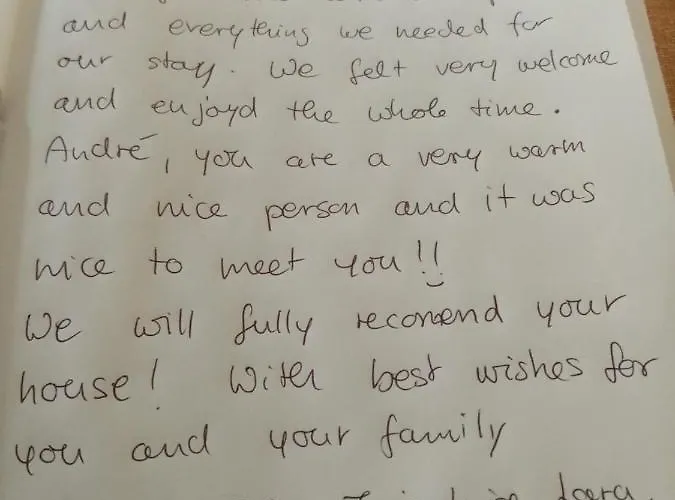 and everything we needed for
our stay. We felt very welcome
and enjoyd the whole time.
André, you are a very warm
and nice person and it was
nice to meet you!!
We will fully recomend your
house! With best wishes for
you and your family